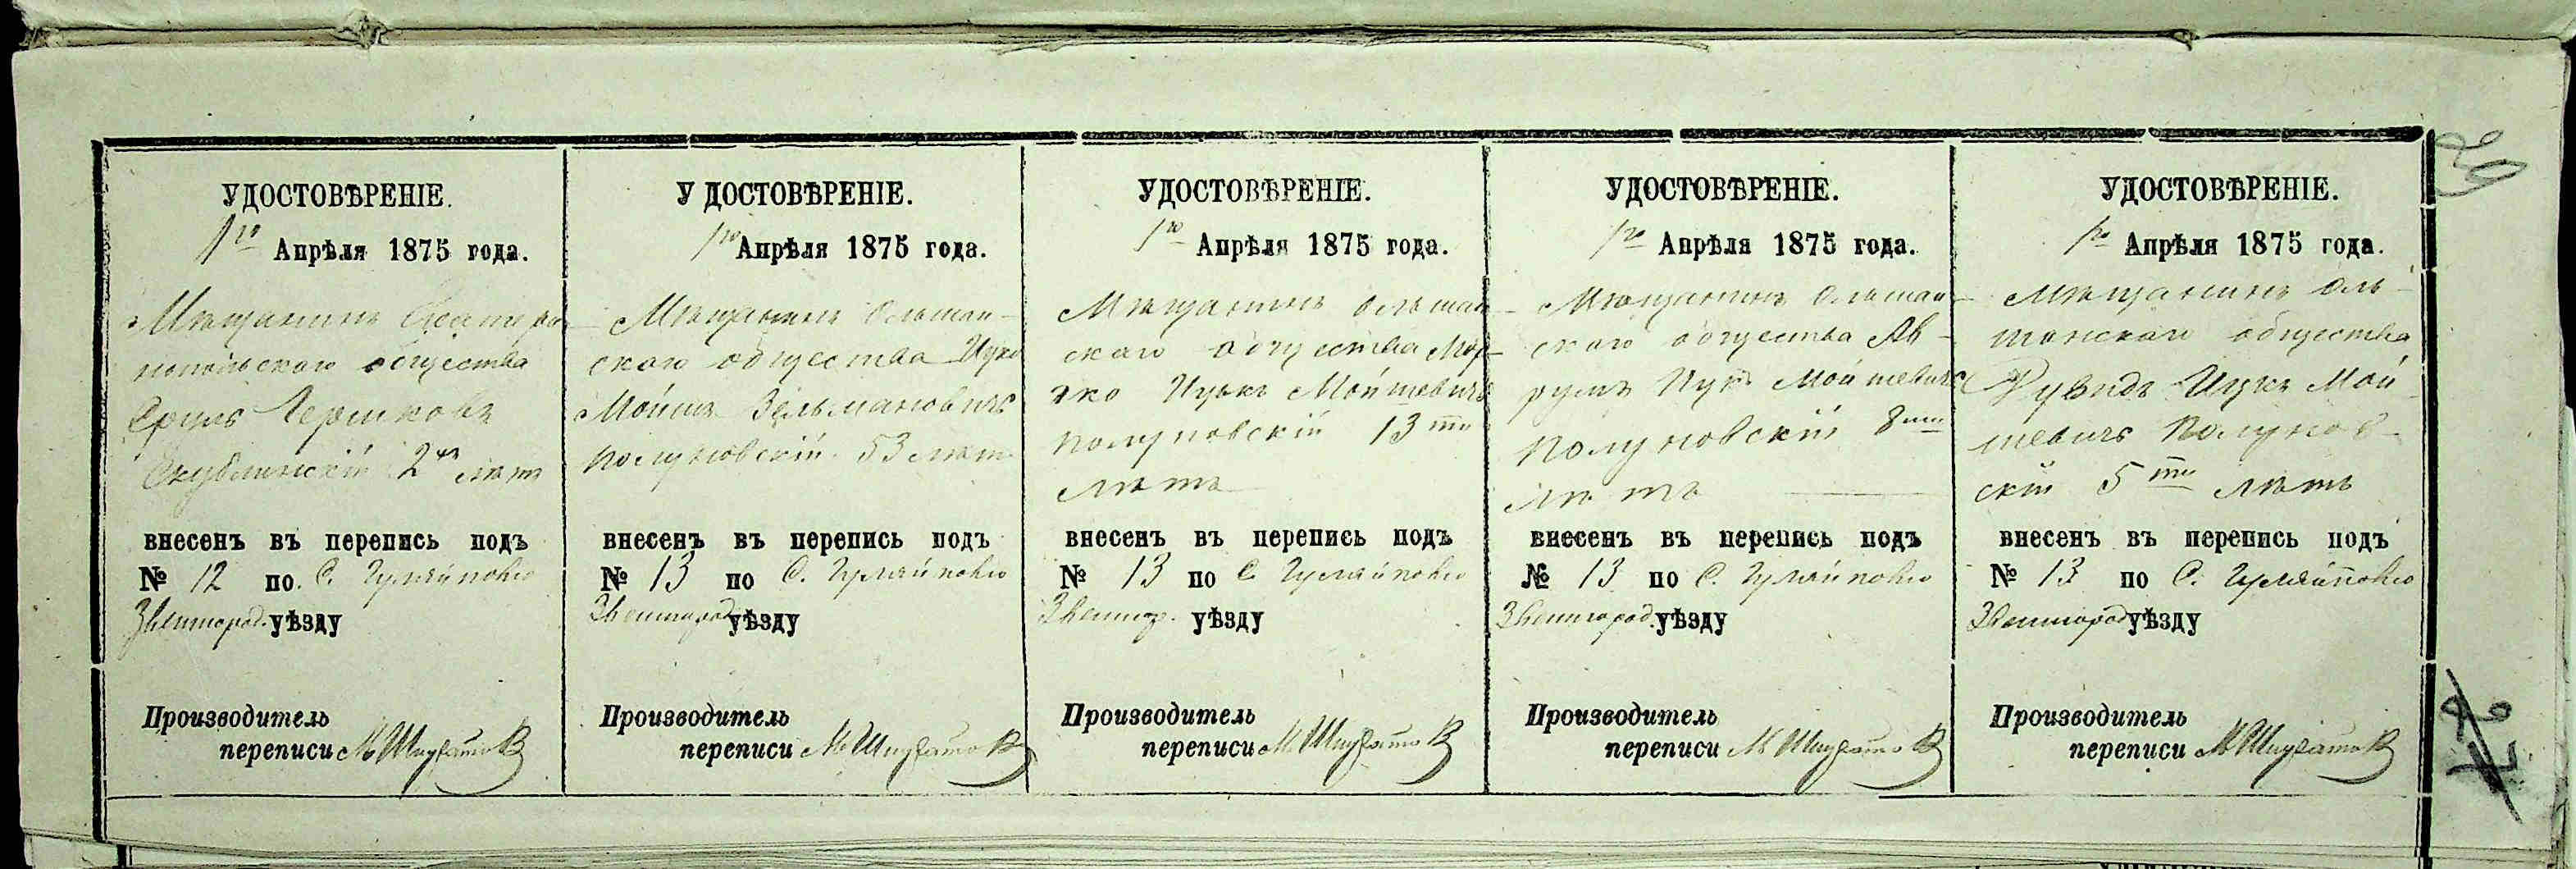 УДОСТОВѢРЕНІЕ.
1го Апрѣля 1875 года.
Мѣщанинъ Екатери
нопольскаго общества
Сруль Гершковъ
Скублинскій 2хъ лѣтъ
внесенъ въ перепись подъ
№ 12 по С. Гуляйполю
Звенигород. уѣзду
Производитель
переписи
УДОСТОВѢРЕНІЕ.
1го Апрѣля 1875 года.
Мѣщанинъ Ольшан-
скаго общества Ицко
Мойше Зельмановичъ
Полуновскій 53 лѣтъ
внесенъ въ перепись подъ
№ 13 по С. Гуляйполю
Звенигород. уѣзду
Производитель
переписи
УДОСТОВѢРЕНІЕ.
1го Апрѣля 1875 года.
Мѣщанинъ Ольшан-
скаго общества Мор-
тко Ицько Мойшевичъ
Полуновскій 13ти
лѣтъ
внесенъ въ перепись подъ
№ 13 по С. Гуляйполю
Звениг. уѣзду
Производитель
переписи
УДОСТОВѢРЕНІЕ.
1го Апрѣля 1875 года.
Мѣщанинъ Ольшан-
скаго общества Ав-
румъ Ицко Мойшевичъ
Полуновскій 8ми
лѣтъ
внесенъ въ перепись подъ
№ 13 по С. Гуляйполю
Звенигород. уѣзду
Производитель
переписи
УДОСТОВѢРЕНІЕ.
1го Апрѣля 1875 года.
Мѣщанинъ Оль-
шанскаго общества
Рувидъ Ицко Мой
шевичъ Полунов-
скій 5ти лѣтъ
внесенъ въ перепись подъ
№ 13 по С. Гуляйполю
Звенигород уѣзду
Производитель
переписи